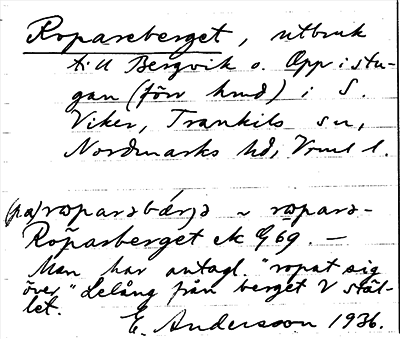 Ropareberget, utbruk
till Bergvik o. Oppistu-
gan (förr hmd) i S.
Viker, Trankils sn,
Nordmarks hd, Vrml l.
(pa) roparəbárjə ~ ropara-
Roparberget ek G 69. —
Man har antagl. "ropat sig
över" Lelång från berget V stäl-
let.
E. Andersson 1936.